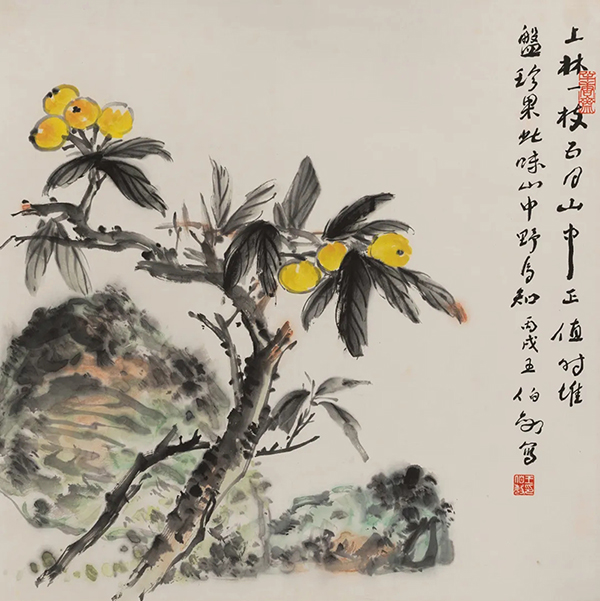 上林一枝五月山中正值时堆
盤珍果此味山中野鸟知丙戌王伯敏寫